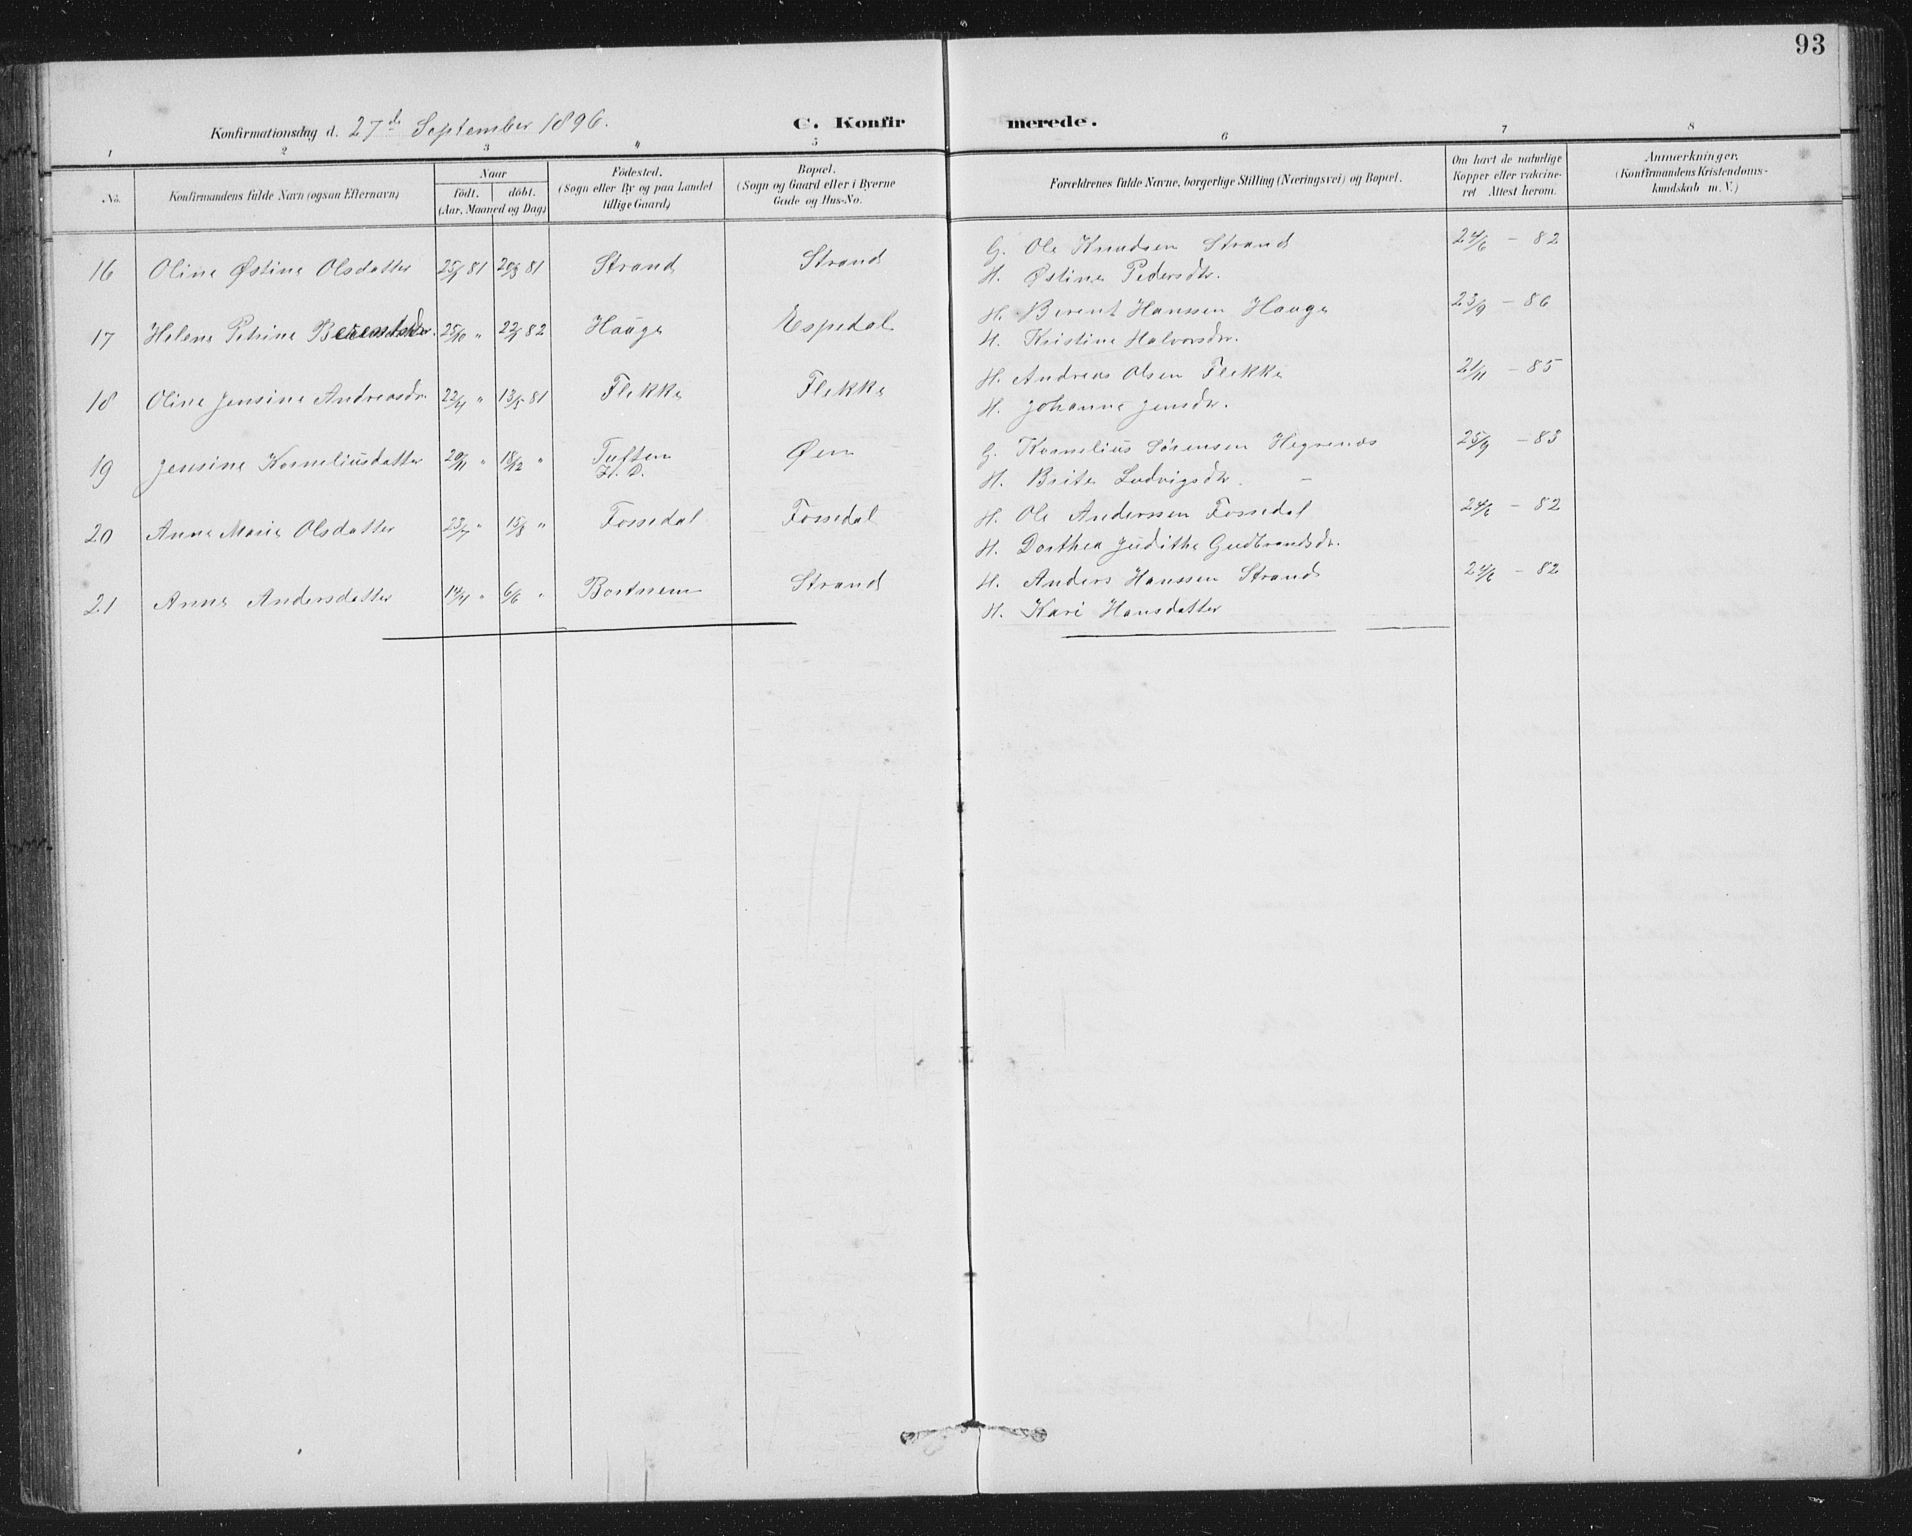 93
Konfirmationsdag d. 27de September 1896. C. Konfirmerede.
1 2 3 4 5 6 7 8
No. Konfirmandens fulde Navn (ogsaa Efternavn) Naar födt. döbt. (Aar, Maaned og Dag) Födested. (Sogn eller By og paa Landet tillige Gaard) Bopæl. (Sogn og Gaard eller i Byerne Gade og Hus-No. Forældrenes fulde Navne, borgerlige Stilling (Næringsvei) og Bopæl. Om havt de naturlige Kopper eller vakcineret Attest herom. Anmerkninger. (Konfirmandens Kristendomskundskab m. V.)
16 Oline Østine Olsdatter 81 81 Strand Strand G. Ole Knudsen Strand 24/6 - 82
H. Østine Pedersdtr.
17 Helene Petrine Berentsdtr. 25/10 " 82 Hauge Espedal H. Berent Hanssen Hauge 23/9 - 86
H. Kristine Halvorsdtr.
18 Oline Jensine Andreasdr. 22/4 " 13/5 81 Flekke Flekke H. Andreas Olsen Flekke 21/11 - 85
H. Johanne Jensdtr.
19 Jensine Korneliusdatter 20/11 " 18/12 " Tuften H.D. Øen G. Kornelius Sørensen Hegrenes 25/9 - 83
H. Brite Ludvigsdtr. -
20 Anne Marie Olsdatter 23/7 " 15/8 " Fossedal Fossedal H. Ole Anderssen Fossedal 24/6 - 82
H. Dorthea Judithe Gudbrandsdr.
21 Anne Andersdatter 14/4 " 6/6 " Bortnem Strand H. Anders Hanssen Strand 24/6 - 82
H. Kari Hansdatter